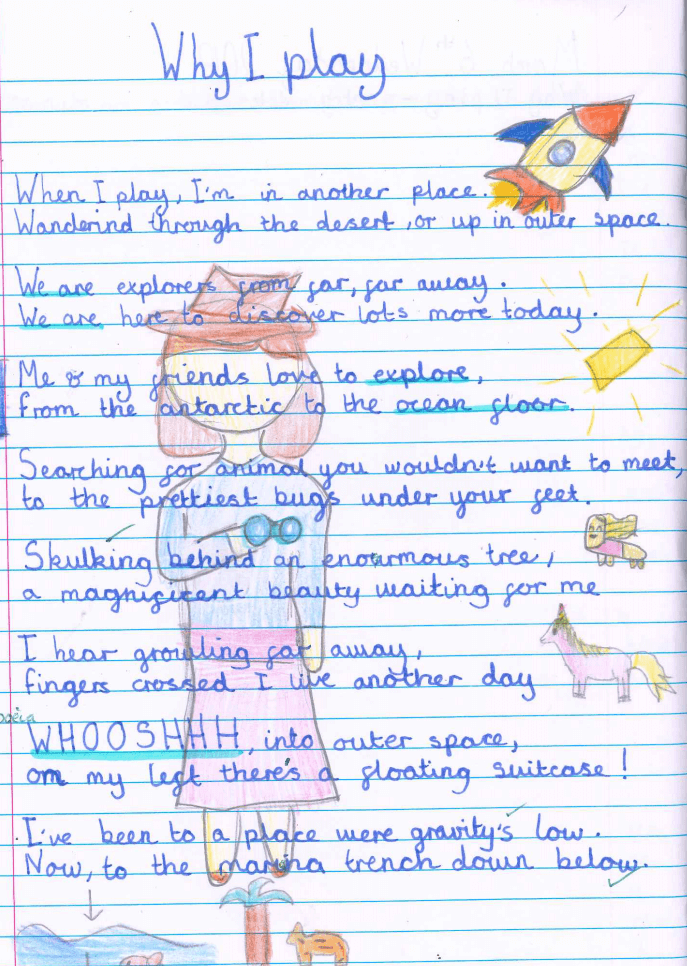 Why I play
When I play, I'm in another place.
Wanderind through the desert, or up in outer space.
We are explorers from far, far away.
We are here to discover lots more today.
Me & my friends love to explore,
from the antarctic to the ocean floor.
Searching for animal you wouldn't want to meet,
to the prettiest bugs under your feet.
Skulking behind an enourmous tree,
a magnificent beauty waiting for me
I hear growling far away,
fingers crossed I live another day
WHOOSHHH, into outer space,
on my left there's a floating suitcase!
I've been to a place were gravity's low.
Now, to the marina trench down below.